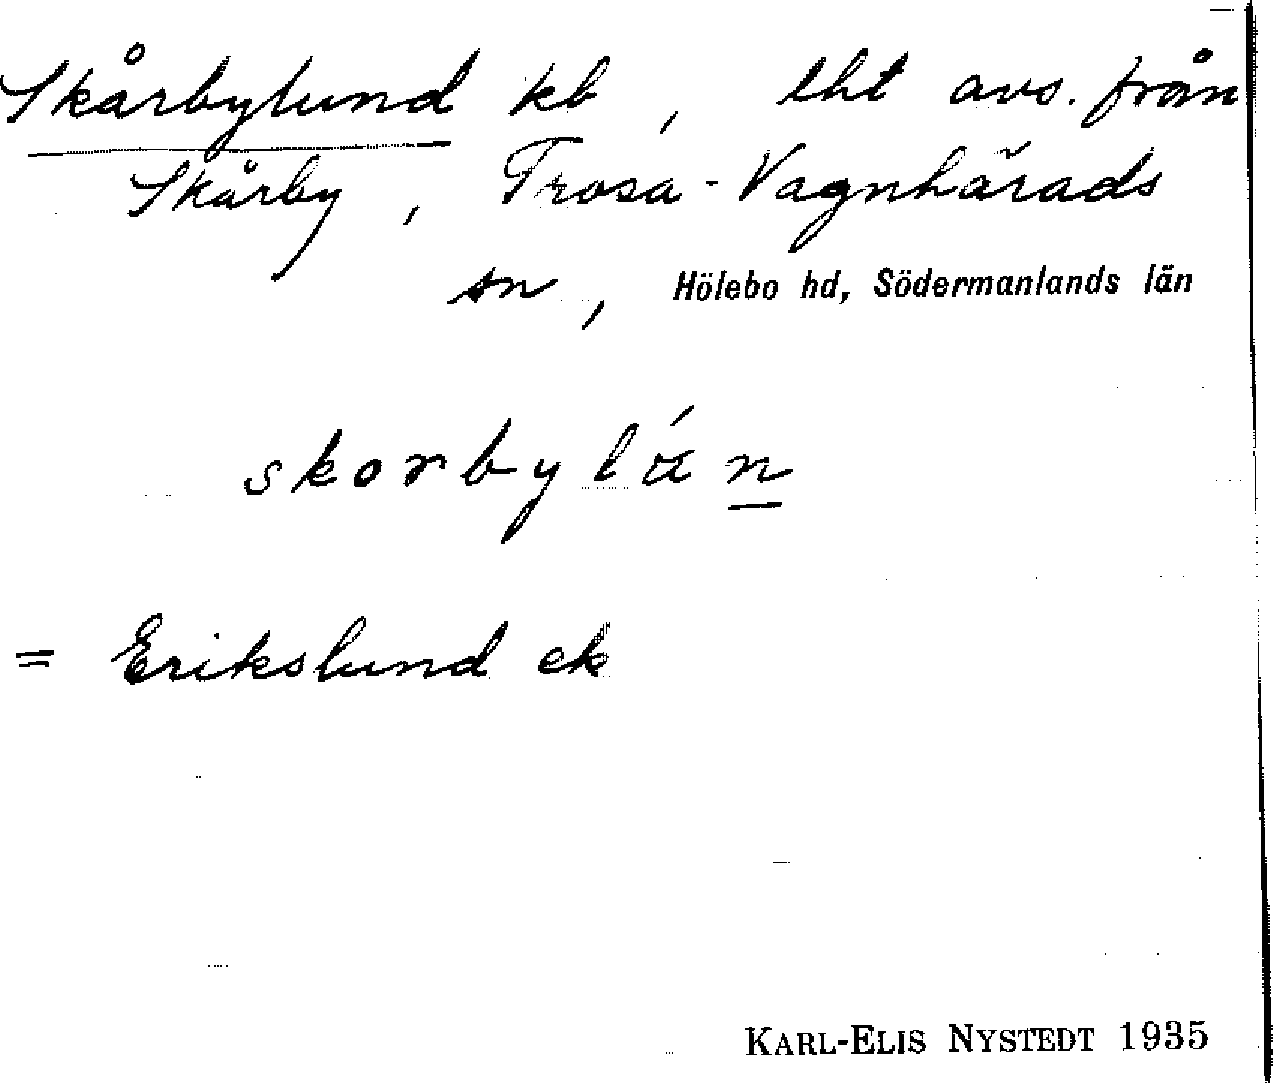 Skårbylund kb, lht avs. från
Skårby, Trosa-Vagnhärads
sn, Hölebo hd, Södermanlands län
skorbylán
= Erikslund ek
KARL-ELIS NYSTEDT 1935